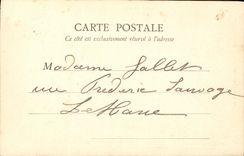 CARTE POSTALE
Ce côté est exclusivement réservé à l'adresse
Madame Gallet
rue Frederic Sauvage
Le Havre